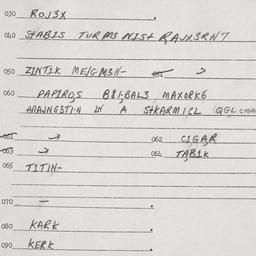 030 ROJ3X
040 StABIS TURM3 NISt RAJX3RN7
050 ZINTIK ME/GM3N- 051 →
060 PAPIROS B81;BAL3 MAXORK6
ARAJNG3TIN IN A StKARMICL QGL CIGA
061 → 062 CIGAR
063 → 064 TABIK
065 TITIN-
070 —
080 KARK
090 KERK